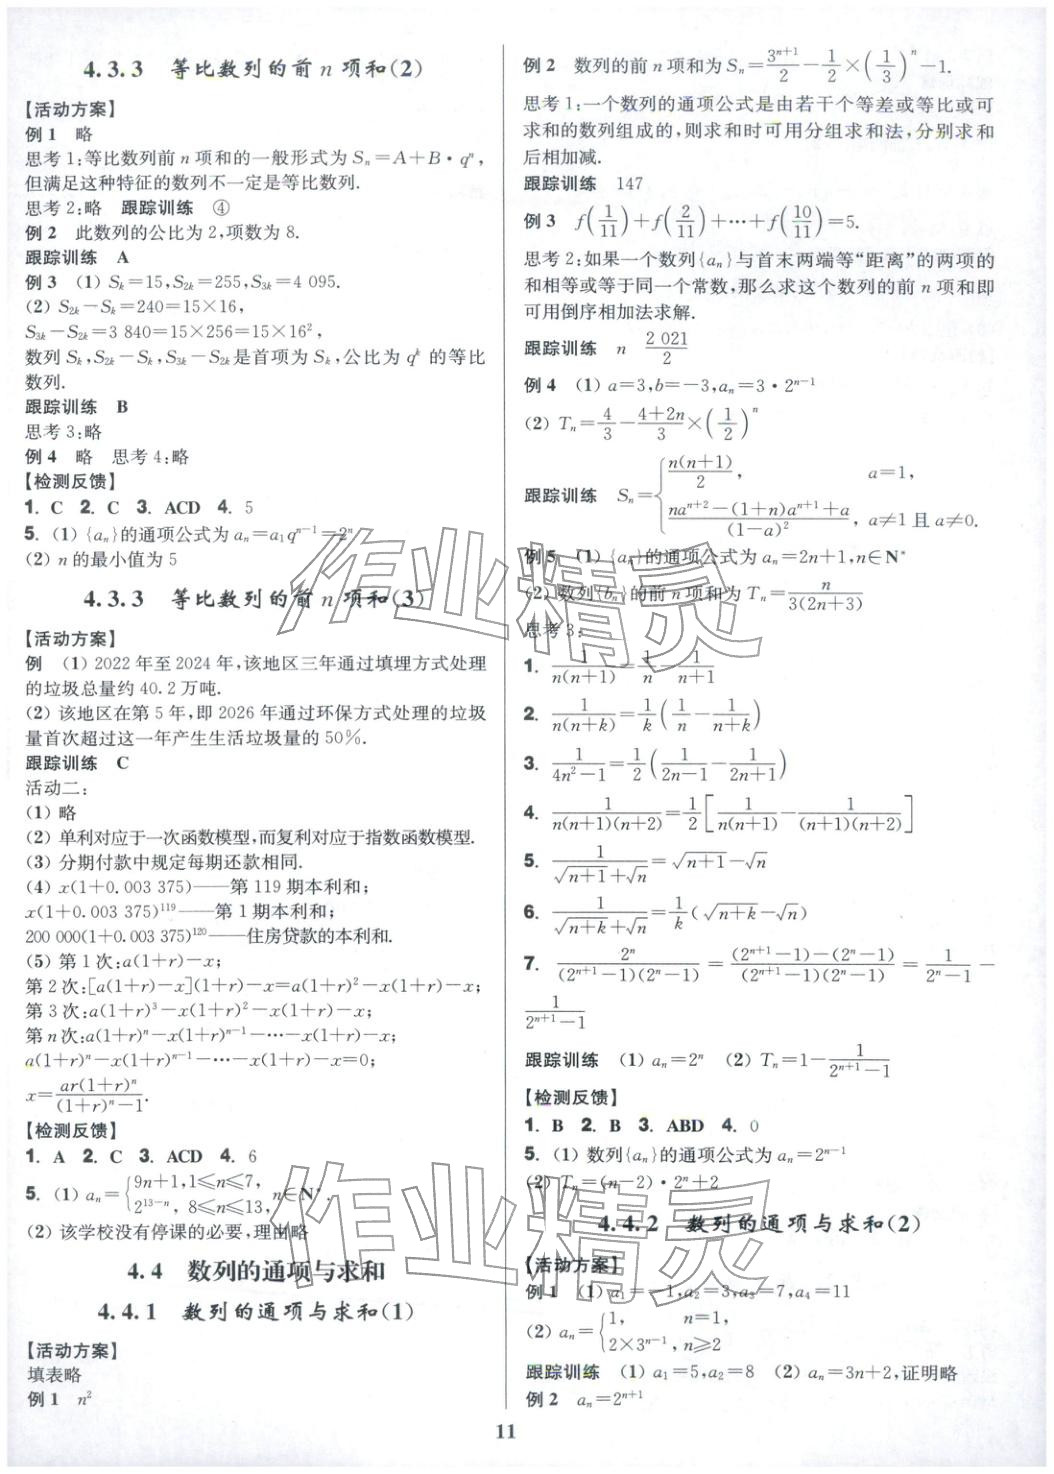 4.3.3 等比数列的前 n 项和(2)
【活动方案】
例 1 略
思考 1:等比数列前 n 项和的一般形式为 Sₙ=A+B·qⁿ,
但满足这种特征的数列不一定是等比数列.
思考 2:略 跟踪训练 ④
例 2 此数列的公比为 2,项数为 8.
跟踪训练 A
例 3 (1) Sₖ=15,S₂ₖ=255,S₃ₖ=4 095.
(2) S₂ₖ-Sₖ=240=15×16,
S₃ₖ-S₂ₖ=3 840=15×256=15×16²,
数列 Sₖ,S₂ₖ-Sₖ,S₃ₖ-S₂ₖ是首项为 Sₖ,公比为 qᵏ 的等比
数列.
跟踪训练 B
思考 3:略
例 4 略 思考 4:略
【检测反馈】
1. C 2. C 3. ACD 4. 5
5. (1) {aₙ}的通项公式为 aₙ=a₁qⁿ⁻¹=2ⁿ
(2) n 的最小值为 5
4.3.3 等比数列的前 n 项和(3)
【活动方案】
例 (1) 2022 年至 2024 年,该地区三年通过填埋方式处理
的垃圾总量约 40.2 万吨.
(2) 该地区在第 5 年,即 2026 年通过环保方式处理的垃圾
量首次超过这一年产生生活垃圾量的 50%.
跟踪训练 C
活动二:
(1) 略
(2) 单利对应于一次函数模型,而复利对应于指数函数模型.
(3) 分期付款中规定每期还款相同.
(4) x(1+0.003 375)——第 119 期本利和;
x(1+0.003 375)¹¹⁹——第 1 期本利和;
200 000(1+0.003 375)¹²⁰——住房贷款的本利和.
(5) 第 1 次:a(1+r)-x;
第 2 次:[a(1+r)-x](1+r)-x=a(1+r)²-x(1+r)-x;
第 3 次:a(1+r)³-x(1+r)²-x(1+r)-x;
第 n 次:a(1+r)ⁿ-x(1+r)ⁿ⁻¹-…-x(1+r)-x;
a(1+r)ⁿ-x(1+r)ⁿ⁻¹-…-x(1+r)-x=0;
x=ar(1+r)ⁿ/((1+r)ⁿ-1).
【检测反馈】
1. A 2. C 3. ACD 4. 6
5. (1) aₙ={9n+1,1≤n≤7,
2¹³⁻ⁿ, 8≤n≤13, n∈N*.
(2) 该学校没有停课的必要,理由略
4.4 数列的通项与求和
4.4.1 数列的通项与求和(1)
【活动方案】
填表略
例 1 n²
例 2 数列的前 n 项和为 Sₙ=3ⁿ⁺¹/2-1/2×(1/3)ⁿ-1.
思考 1:一个数列的通项公式是由若干个等差或等比或可
求和的数列组成的,则求和时可用分组求和法,分别求和
后相加减.
跟踪训练 147
例 3 f(1/11)+f(2/11)+…+f(10/11)=5.
思考 2:如果一个数列{aₙ}与首末两端等“距离”的两项的
和相等或等于同一个常数,那么求这个数列的前 n 项和即
可用倒序相加法求解.
跟踪训练 n 2 021/2
例 4 (1) a=3,b=-3,aₙ=3·2ⁿ⁻¹
(2) Tₙ=4/3-(4+2n)/3×(1/2)ⁿ
跟踪训练 Sₙ={n(n+1)/2, a=1,
(naⁿ⁺²-(1+n)aⁿ⁺¹+a)/(1-a)², a≠1 且 a≠0.
例 5 (1) {aₙ}的通项公式为 aₙ=2n+1,n∈N*
(2) 数列{bₙ}的前 n 项和为 Tₙ=n/(3(2n+3))
思考 3:
1. 1/(n(n+1))=1/n-1/(n+1)
2. 1/(n(n+k))=1/k(1/n-1/(n+k))
3. 1/(4n²-1)=1/2(1/(2n-1)-1/(2n+1))
4. 1/(n(n+1)(n+2))=1/2[1/(n(n+1))-1/((n+1)(n+2))]
5. 1/(√(n+1)+√n)=√(n+1)-√n
6. 1/(√(n+k)+√n)=1/k(√(n+k)-√n)
7. 2ⁿ/((2ⁿ⁺¹-1)(2ⁿ-1))=((2ⁿ⁺¹-1)-(2ⁿ-1))/((2ⁿ⁺¹-1)(2ⁿ-1))=1/(2ⁿ-1)-
1/(2ⁿ⁺¹-1)
跟踪训练 (1) aₙ=2ⁿ (2) Tₙ=1-1/(2ⁿ⁺¹-1)
【检测反馈】
1. B 2. B 3. ABD 4. 0
5. (1) 数列{aₙ}的通项公式为 aₙ=2ⁿ⁻¹
(2) Tₙ=(n-2)·2ⁿ+2
4.4.2 数列的通项与求和(2)
【活动方案】
例 1 (1) a₁=-1,a₂=3,a₃=7,a₄=11
(2) aₙ={1, n=1,
2×3ⁿ⁻¹, n≥2
跟踪训练 (1) a₁=5,a₂=8 (2) aₙ=3n+2,证明略
例 2 aₙ=2ⁿ⁺¹
11
作业精灵
作业精灵